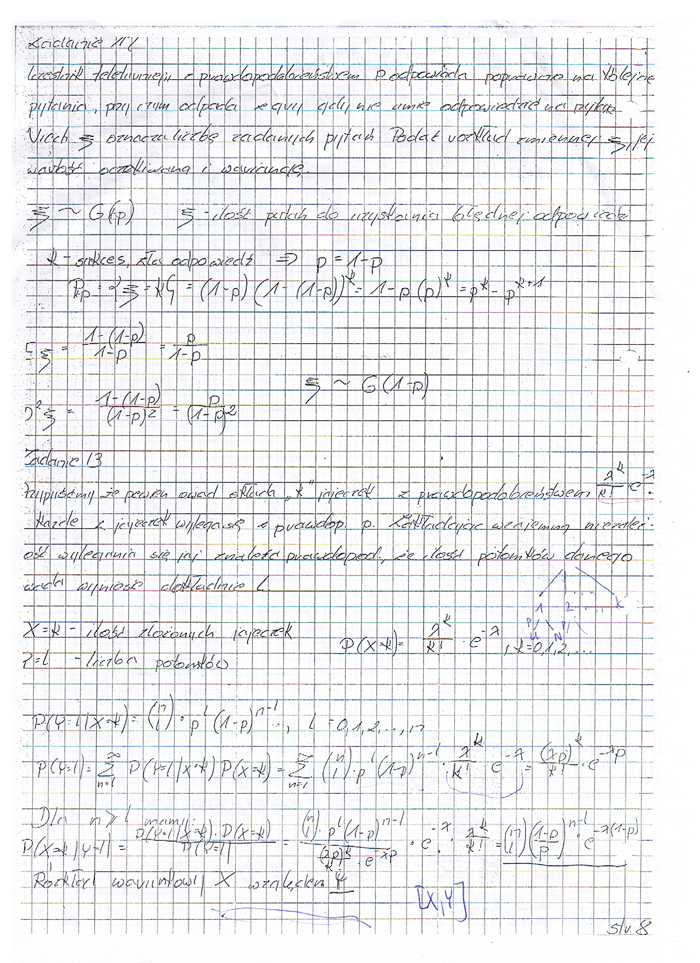 Zadanie XIV
Uczestnik teleturnieju z prawdopodobieństwem p odpowiada poprawnie na kolejne
pytania, przy czym odpada z gry gdy nie umie odpowiedzieć na pytanie
Niech ξ oznacza liczbę zadanych pytań Podać rozkład zmiennej ξ, jej
wartość oczekiwaną i wariancję.
ξ ~ G(p) ξ - ilość pytań do uzyskania błędnej odpowiedzi
k - sukces, zła odpowiedź ⇒ p = 1-p
= {ξ = k} = (1-p) (1-(1-p))^k = 1-p (p)^k = p^k - p^{k+1}
Eξ = \frac{1-(1-p)}{1-p} = \frac{p}{1-p}
ξ ~ G(1-p)
D²ξ = \frac{1-(1-p)}{(1-p)^2} = \frac{p}{(1-p)^2}
Zadanie 13
Przypuśćmy że pewien owad składa „k" jajeczek z prawdopodobieństwem \frac{λ^k}{k!} · e^{-λ}.
Każde z jajeczek wylęga się z prawdop p. Zakładając wzajemną niezależ-
ość wylęgania się jaj znaleźć prawdopod., że ilość potomków danego
owada wyniesie dokładnie L
1 2 k
X=k - ilość złożonych jajeczek
P(X=k) = \frac{λ^k}{k!} · e^{-λ}, k=0,1,2,...
Y=l - liczba potomków
P(Y=l|X=k) = \binom{n}{l} · p^l (1-p)^{n-l} ..., l = 0,1,2,...,n
P(Y=l) = \sum_{n=1}^{∞} P(Y=l|X=k) P(X=k) = \sum_{n=1}^{∞} \binom{n}{l} · p^l (1-p)^{n-l} · \frac{λ^k}{k!} · e^{-λ} = \frac{(λp)^k}{k!} · e^{-λp}
Dla n ≥ l mamy:
P(X=k|Y=l) = \frac{P(Y=l|X=k) · P(X=k)}{P(Y=l)} = \frac{\binom{n}{l} · p^l (1-p)^{n-l}}{\frac{(λp)^k}{k!} · e^{λp}} · e^{-λ} · \frac{λ^k}{k!} = \binom{n}{l} \left(\frac{1-p}{p}\right)^{n-l} · e^{-λ(1-p)}
Rozkład warunkowy X względem Y
[X,Y]
str. 8